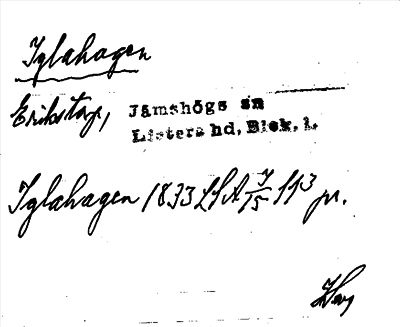 Iglahagen
Erikstorp, Jämshögs sn
Listers hd, Blek. l.
Iglahagen 1833 LSA 7/15 593 pr.